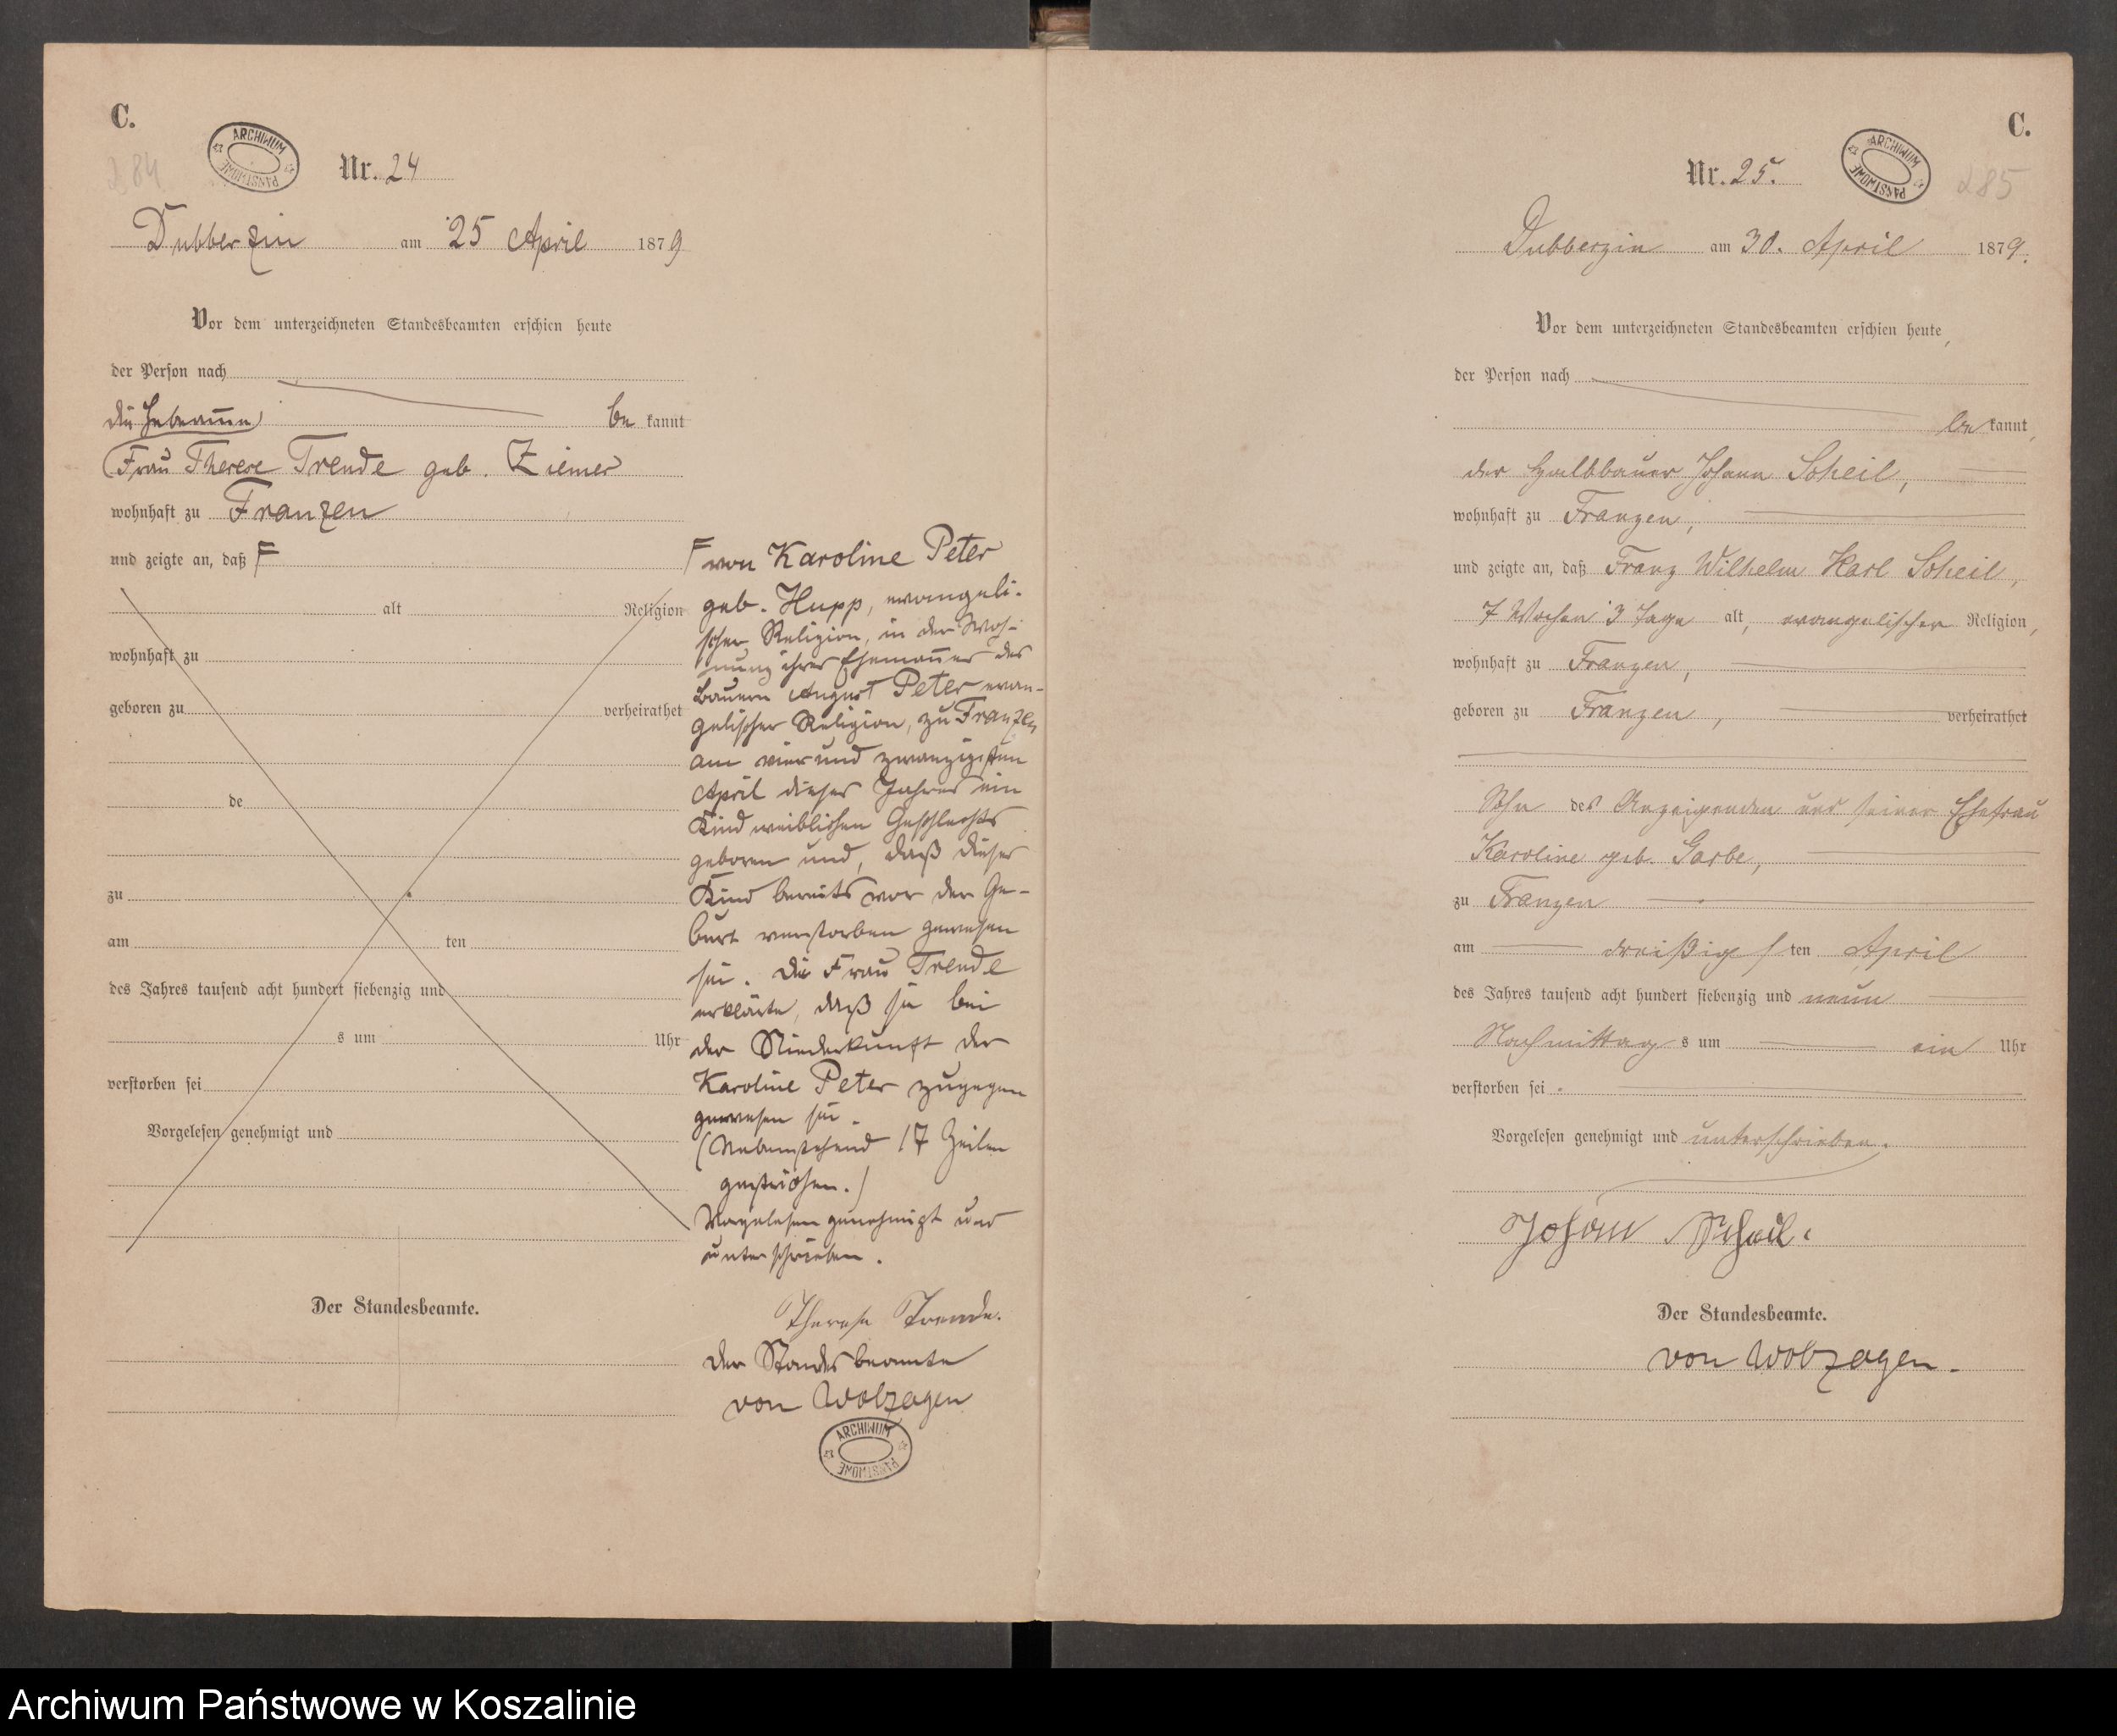 C.
ARCHIWUM PAŃSTWOWE
284
Nr. 24
Dubberzin am 25 April 1879
Vor dem unterzeichneten Standesbeamten erschien heute
der Person nach
die Hebamme bekannt
Frau Therese Trende geb. Ziemer
wohnhaft zu Franzen
und zeigte an, daß F
alt Religion
wohnhaft zu
geboren zu verheirathet
de
zu
am ten
des Jahres tausend acht hundert siebenzig und
s um Uhr
verstorben sei
Vorgelesen genehmigt und
Der Standesbeamte.
F von Karoline Peter
geb. Hupp, evangeli-
scher Religion, in der Woh-
nung ihres Ehemannes des
Bauern August Peter evan-
gelischer Religion, zu Franzen
am vier und zwanzigsten
April dieses Jahres ein
Kind weiblichen Geschlechts
geboren und, daß dieses
Kind bereits vor der Ge-
burt verstorben gewesen
sei. Die Frau Trende
erklärte, daß sie bei
der Niederkunft der
Karoline Peter zugegen
gewesen sei.
(Nebenstehend 17 Zeilen
gestrichen.)
Vorgelesen genehmigt und
unterschrieben.
Therese Trende.
Der Standesbeamte
von Wolzogen
ARCHIWUM PAŃSTWOWE
C.
ARCHIWUM PAŃSTWOWE
285
Nr. 25.
Dubberzin am 30. April 1879.
Vor dem unterzeichneten Standesbeamten erschien heute,
der Person nach
bekannt,
der Halbbauer Johann Scheil,
wohnhaft zu Franzen,
und zeigte an, daß Franz Wilhelm Karl Scheil,
7 Wochen 3 Tage alt, evangelischer Religion,
wohnhaft zu Franzen,
geboren zu Franzen, verheirathet
Sohn des Anzeigenden und seiner Ehefrau
Karoline geb. Garbe,
zu Franzen
am dreißigsten April
des Jahres tausend acht hundert siebenzig und neun
Nachmittags um ein Uhr
verstorben sei
Vorgelesen genehmigt und unterschrieben.
Johann Scheil.
Der Standesbeamte.
von Wolzogen.
Archiwum Państwowe w Koszalinie